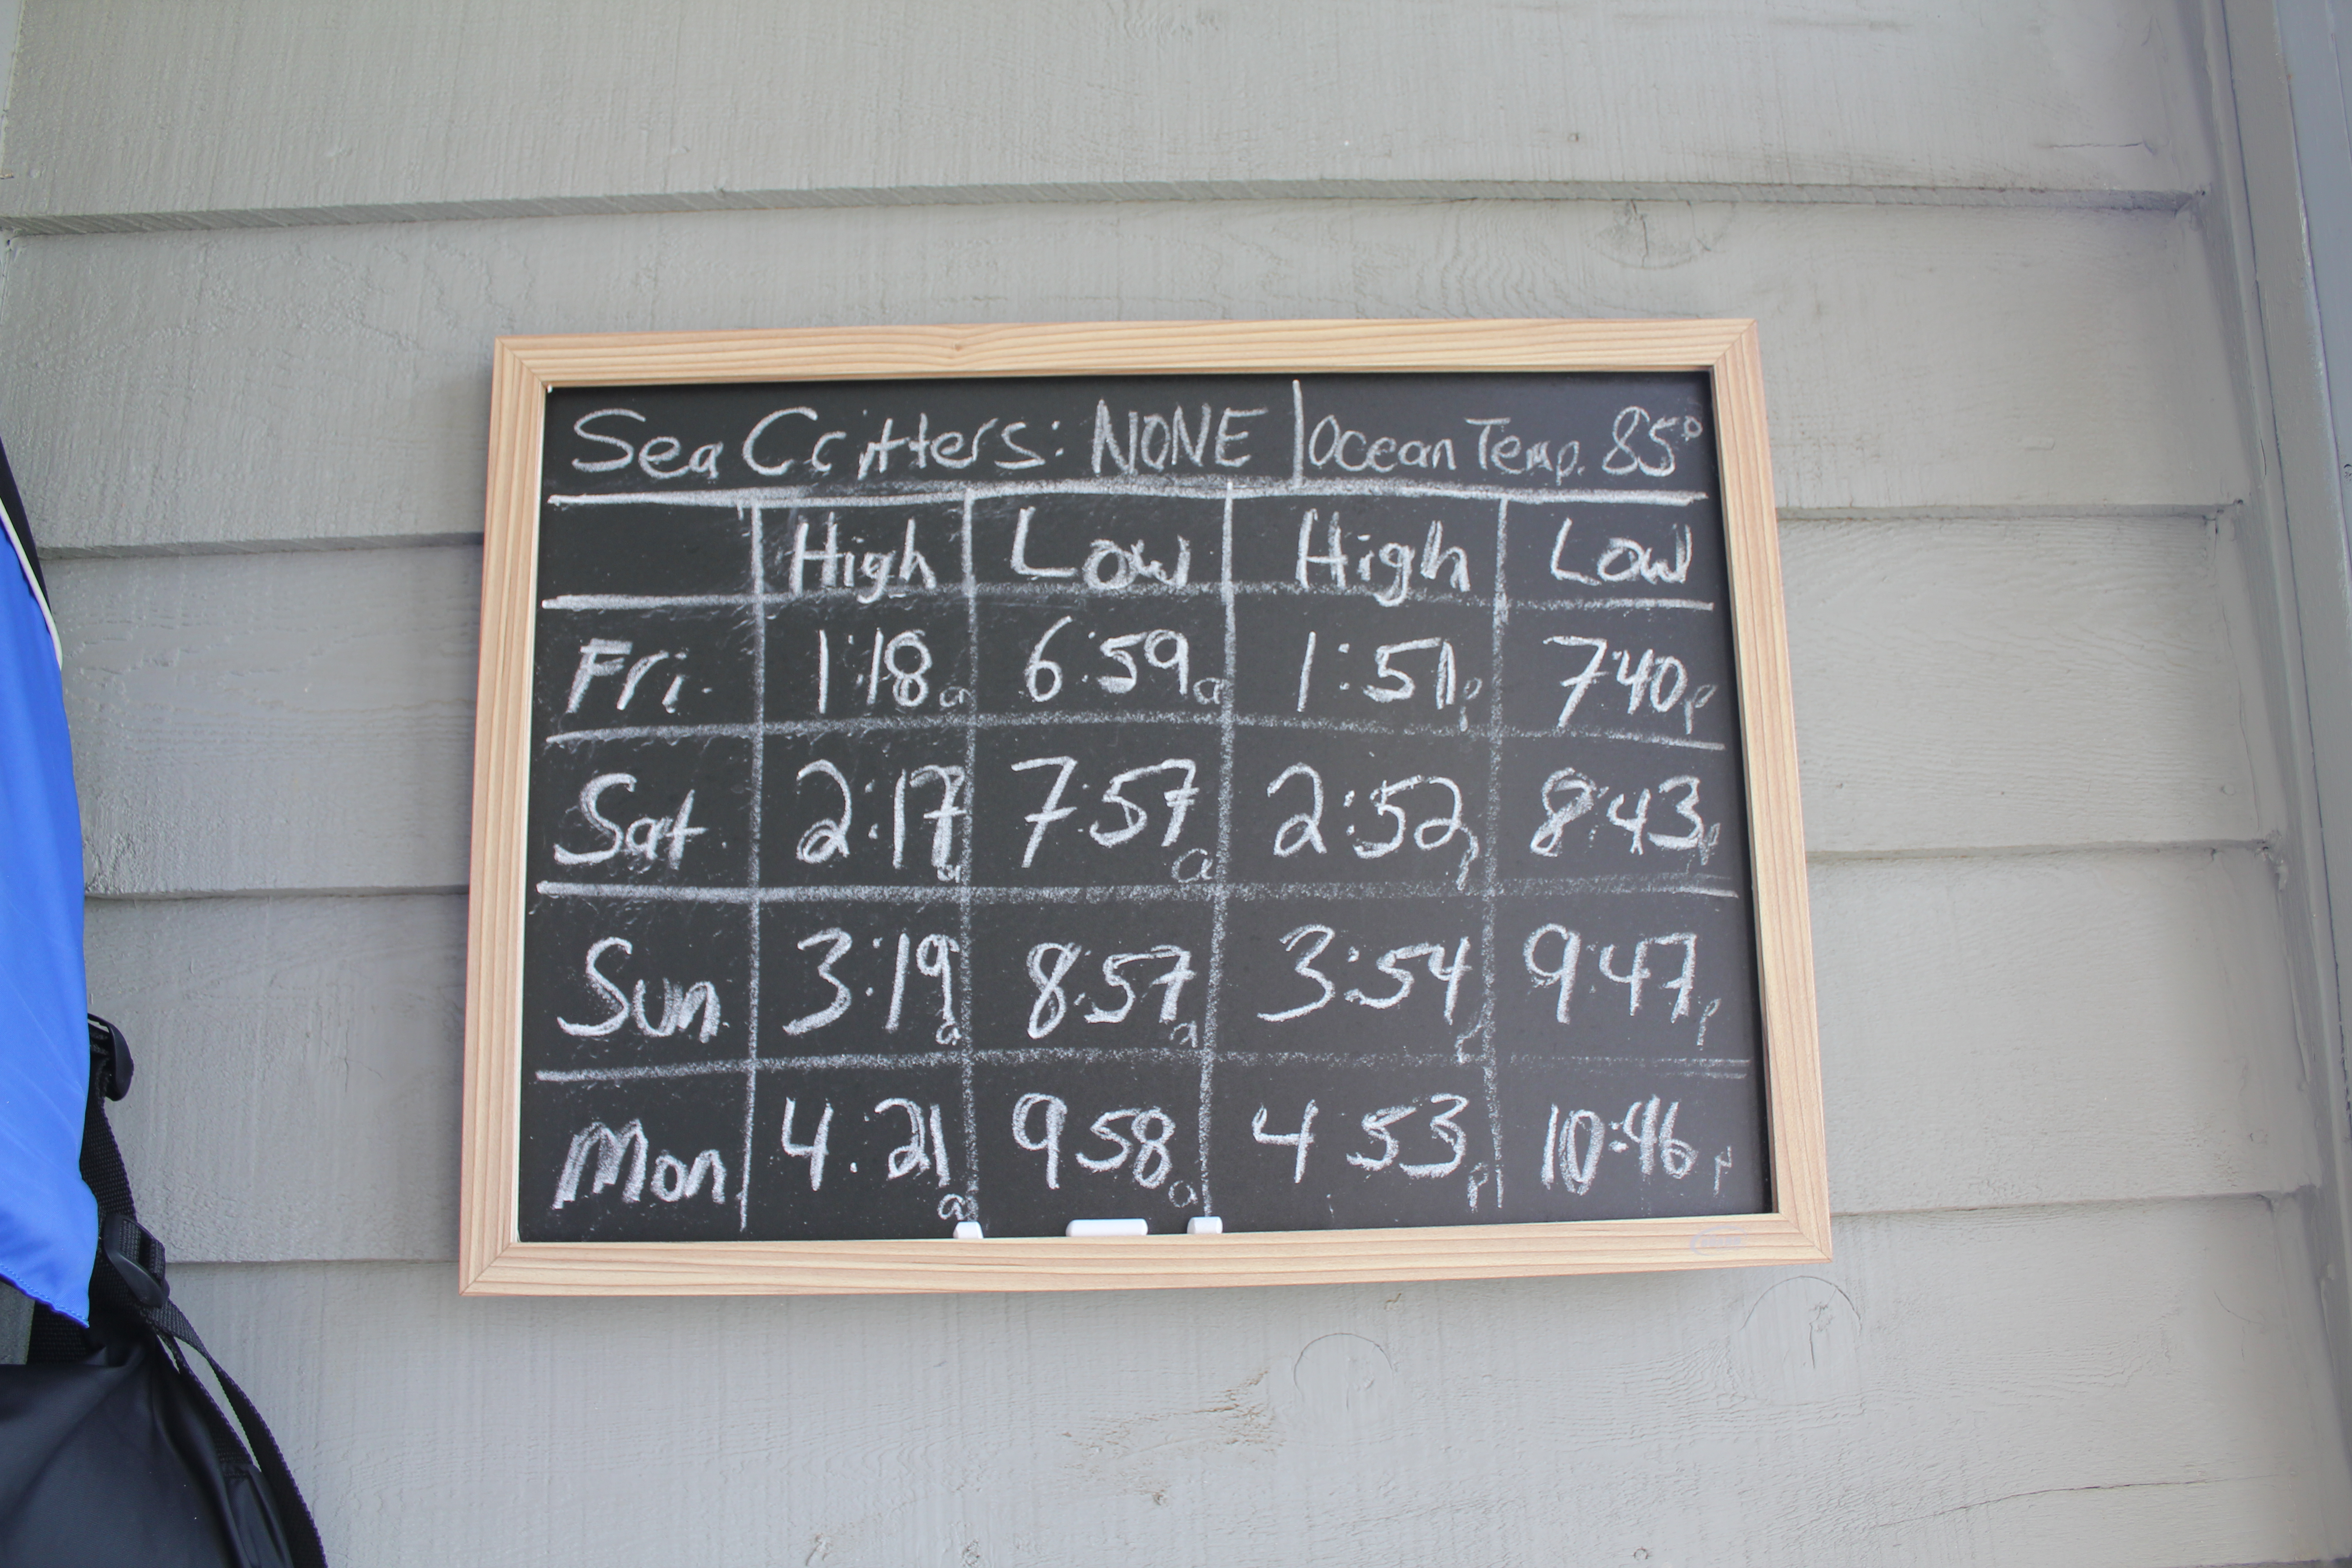 Sea Critters: NONE | Ocean Temp. 85°
High Low High Low
Fri. 1:18a 6:59a 1:51p 7:40p
Sat. 2:17a 7:57a 2:52p 8:43p
Sun. 3:19a 8:57a 3:54p 9:47p
Mon. 4:21a 958a 4 53p 10:46p